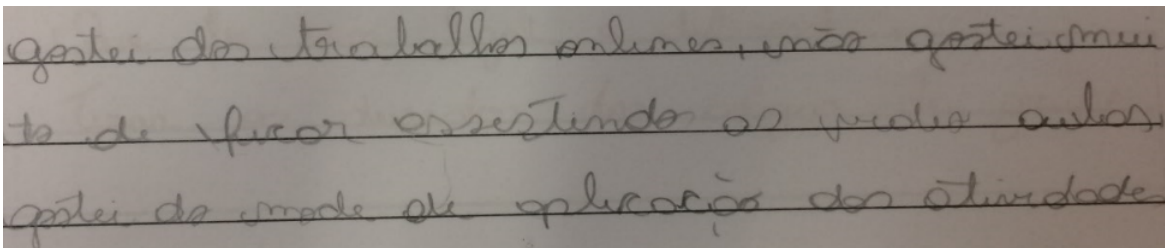 gostei dos trabalhos onlines, não gostei mui
to de ficar assestindo as video aulas.
gostei do modo de aplicação das atividade